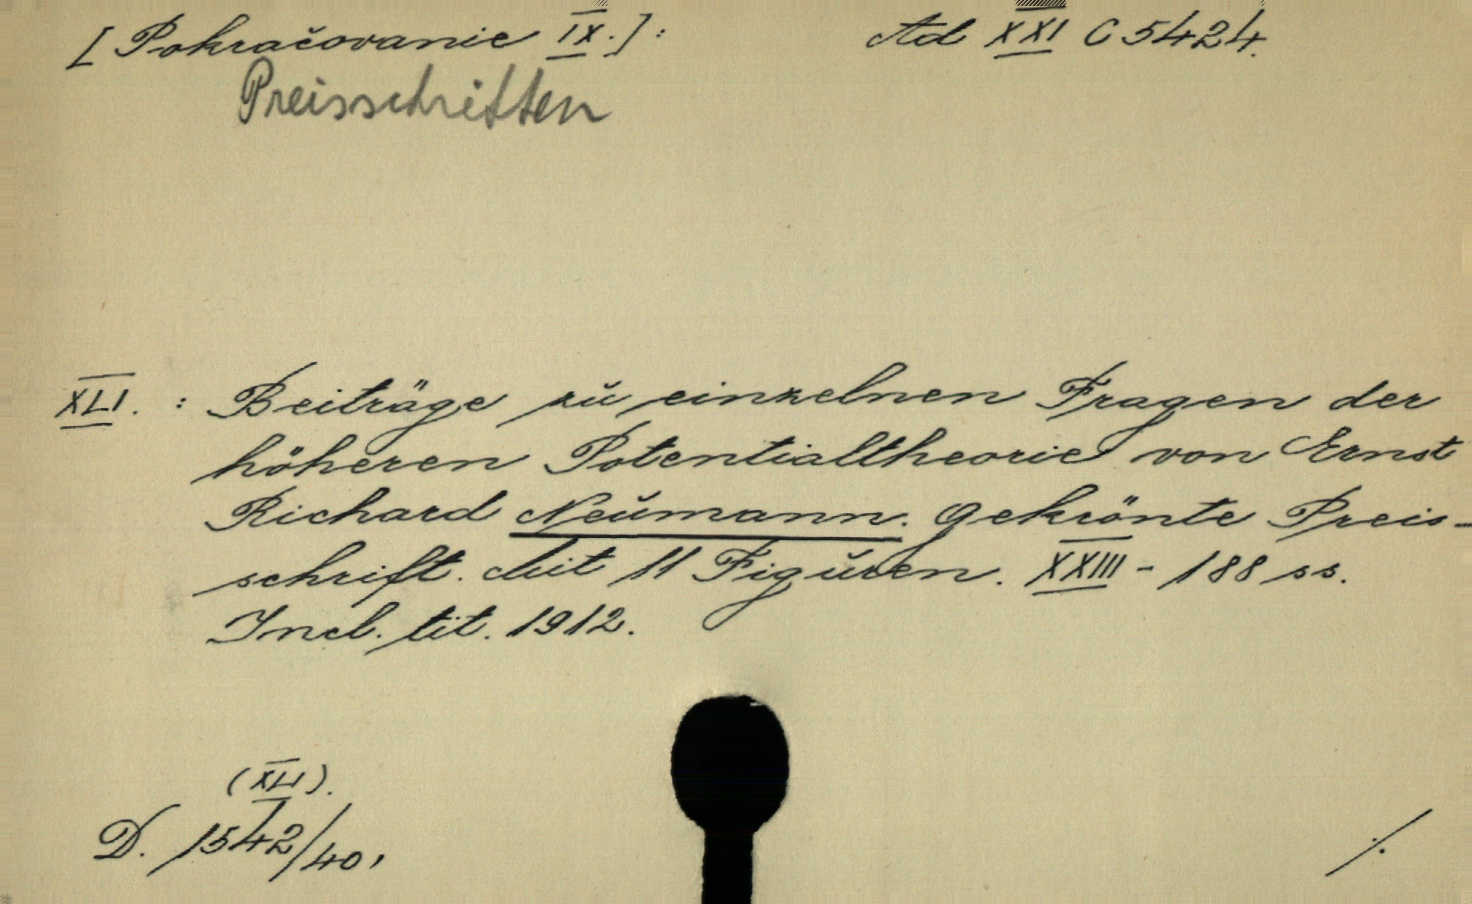 [Pokračovanie IX.]: Ad XXI C 5424.
Preisschriften
XLI. : Beiträge zu einzelnen Fragen der
höheren Potentialtheorie von Ernst
Richard Neumann. Gekrönte Preis-
schrift. Mit 11 Figuren. XXIII - 188 ss.
Incl. tit. 1912.
(XLI).
D. 1542/40,
./.